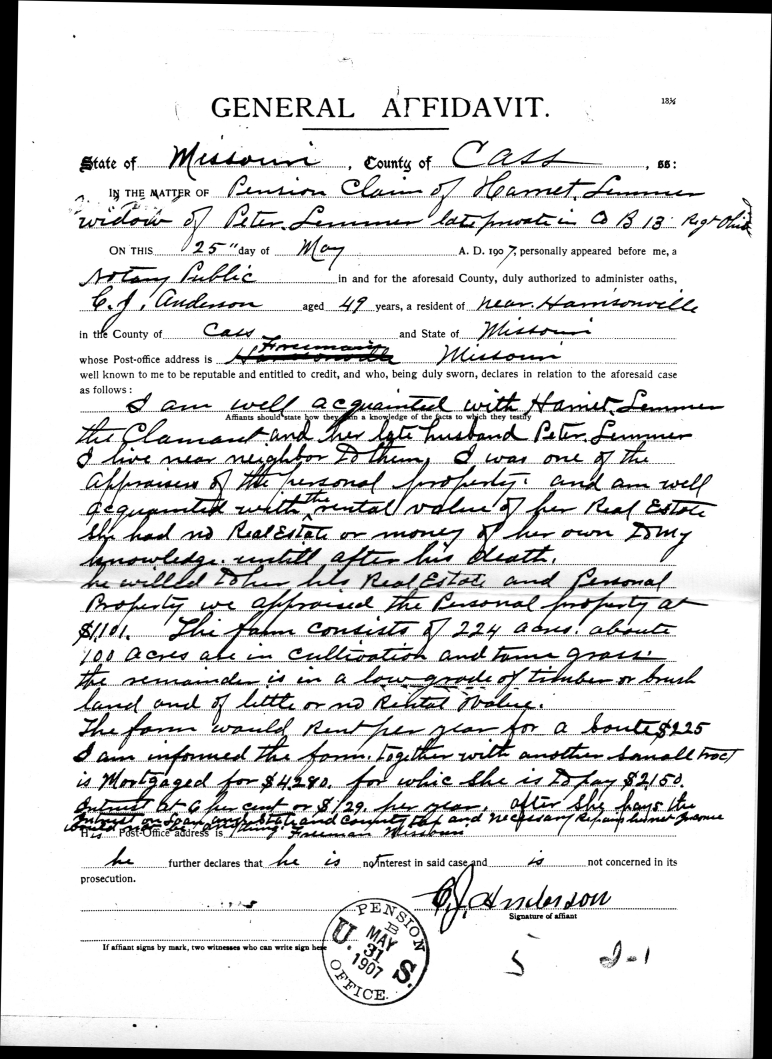 GENERAL AFFIDAVIT.
State of Missouri, County of Cass, ss:
IN THE MATTER OF Pension Claim of Harriet Lemmer
widow of Peter Lemmer late private in Co B 13 Regt Ohio
ON THIS 25" day of May A. D. 1907, personally appeared before me, a
Notary Public in and for the aforesaid County, duly authorized to administer oaths,
C. J. Anderson aged 49 years, a resident of near Harrisonville
in the County of Cass and State of Missouri
Freeman
whose Post-office address is Harrisonville Missouri
well known to me to be reputable and entitled to credit, and who, being duly sworn, declares in relation to the aforesaid case
as follows:
I am well acquainted with Harriet Lemmer
Affiants should state how they gain a knowledge of the facts to which they testify
the Claimant and her late husband Peter Lemmer
I live near neighbor to them. I was one of the
appraisers of the personal property. and am well
acquainted with the rental value of her Real Estate
She had no Real Estate or money of her own to my
knowledge. untill after his death.
he willed to her his Real Estate and Personal
Property we appraised the Personal property at
$1,101. This farm consists of 224 acres. aboute
100 acres are in cultivation and tame grass.
the remainder is in a low grade of timber or brush
land and of little or no Rental value.
The farm would Rent per year for a boute $225
I am informed the farm. together with another small tract
is Mortgaged for $4280. for whic she is to pay $2150.
Intrust at 6 per cent or $129. per year. after she pays the
Intrust on loan and State and County tax and necessary Repairs
His Post-Office address is Freeman Missouri
he further declares that he is no interest in said case and is not concerned in its
prosecution.
C. J. Anderson
Signature of affiant
If affiant signs by mark, two witnesses who can write sign here
PENSION
B
U. MAY S.
31
1907
OFFICE.
5
2-1